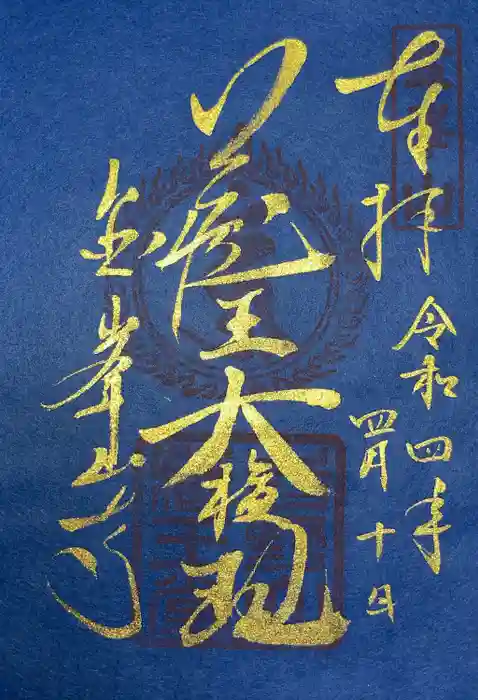 奉拝
令和四年
四月十日
蔵王大権現
金峯山寺